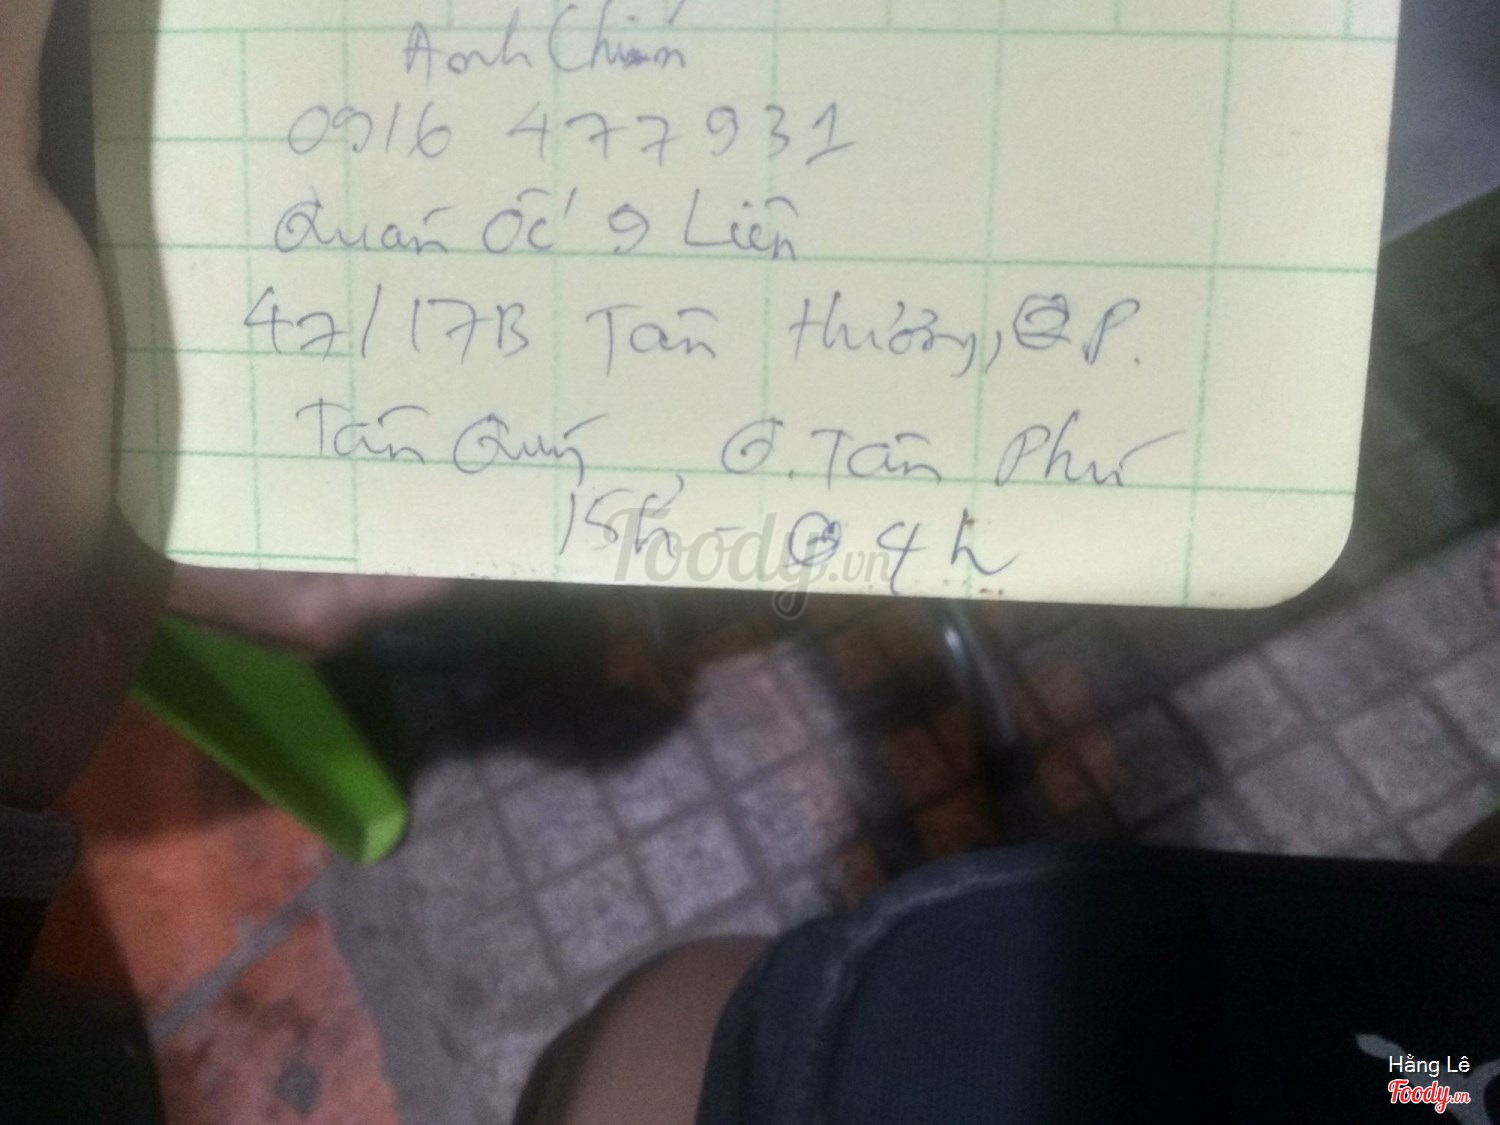 Anh Chiến
0916 477931
Quán ốc 9 Liên
47/17B Tân Hương, P.
Tân Quý, Q. Tân Phú
15h - 4h
Foody.vn
Hằng Lê
Foody.vn